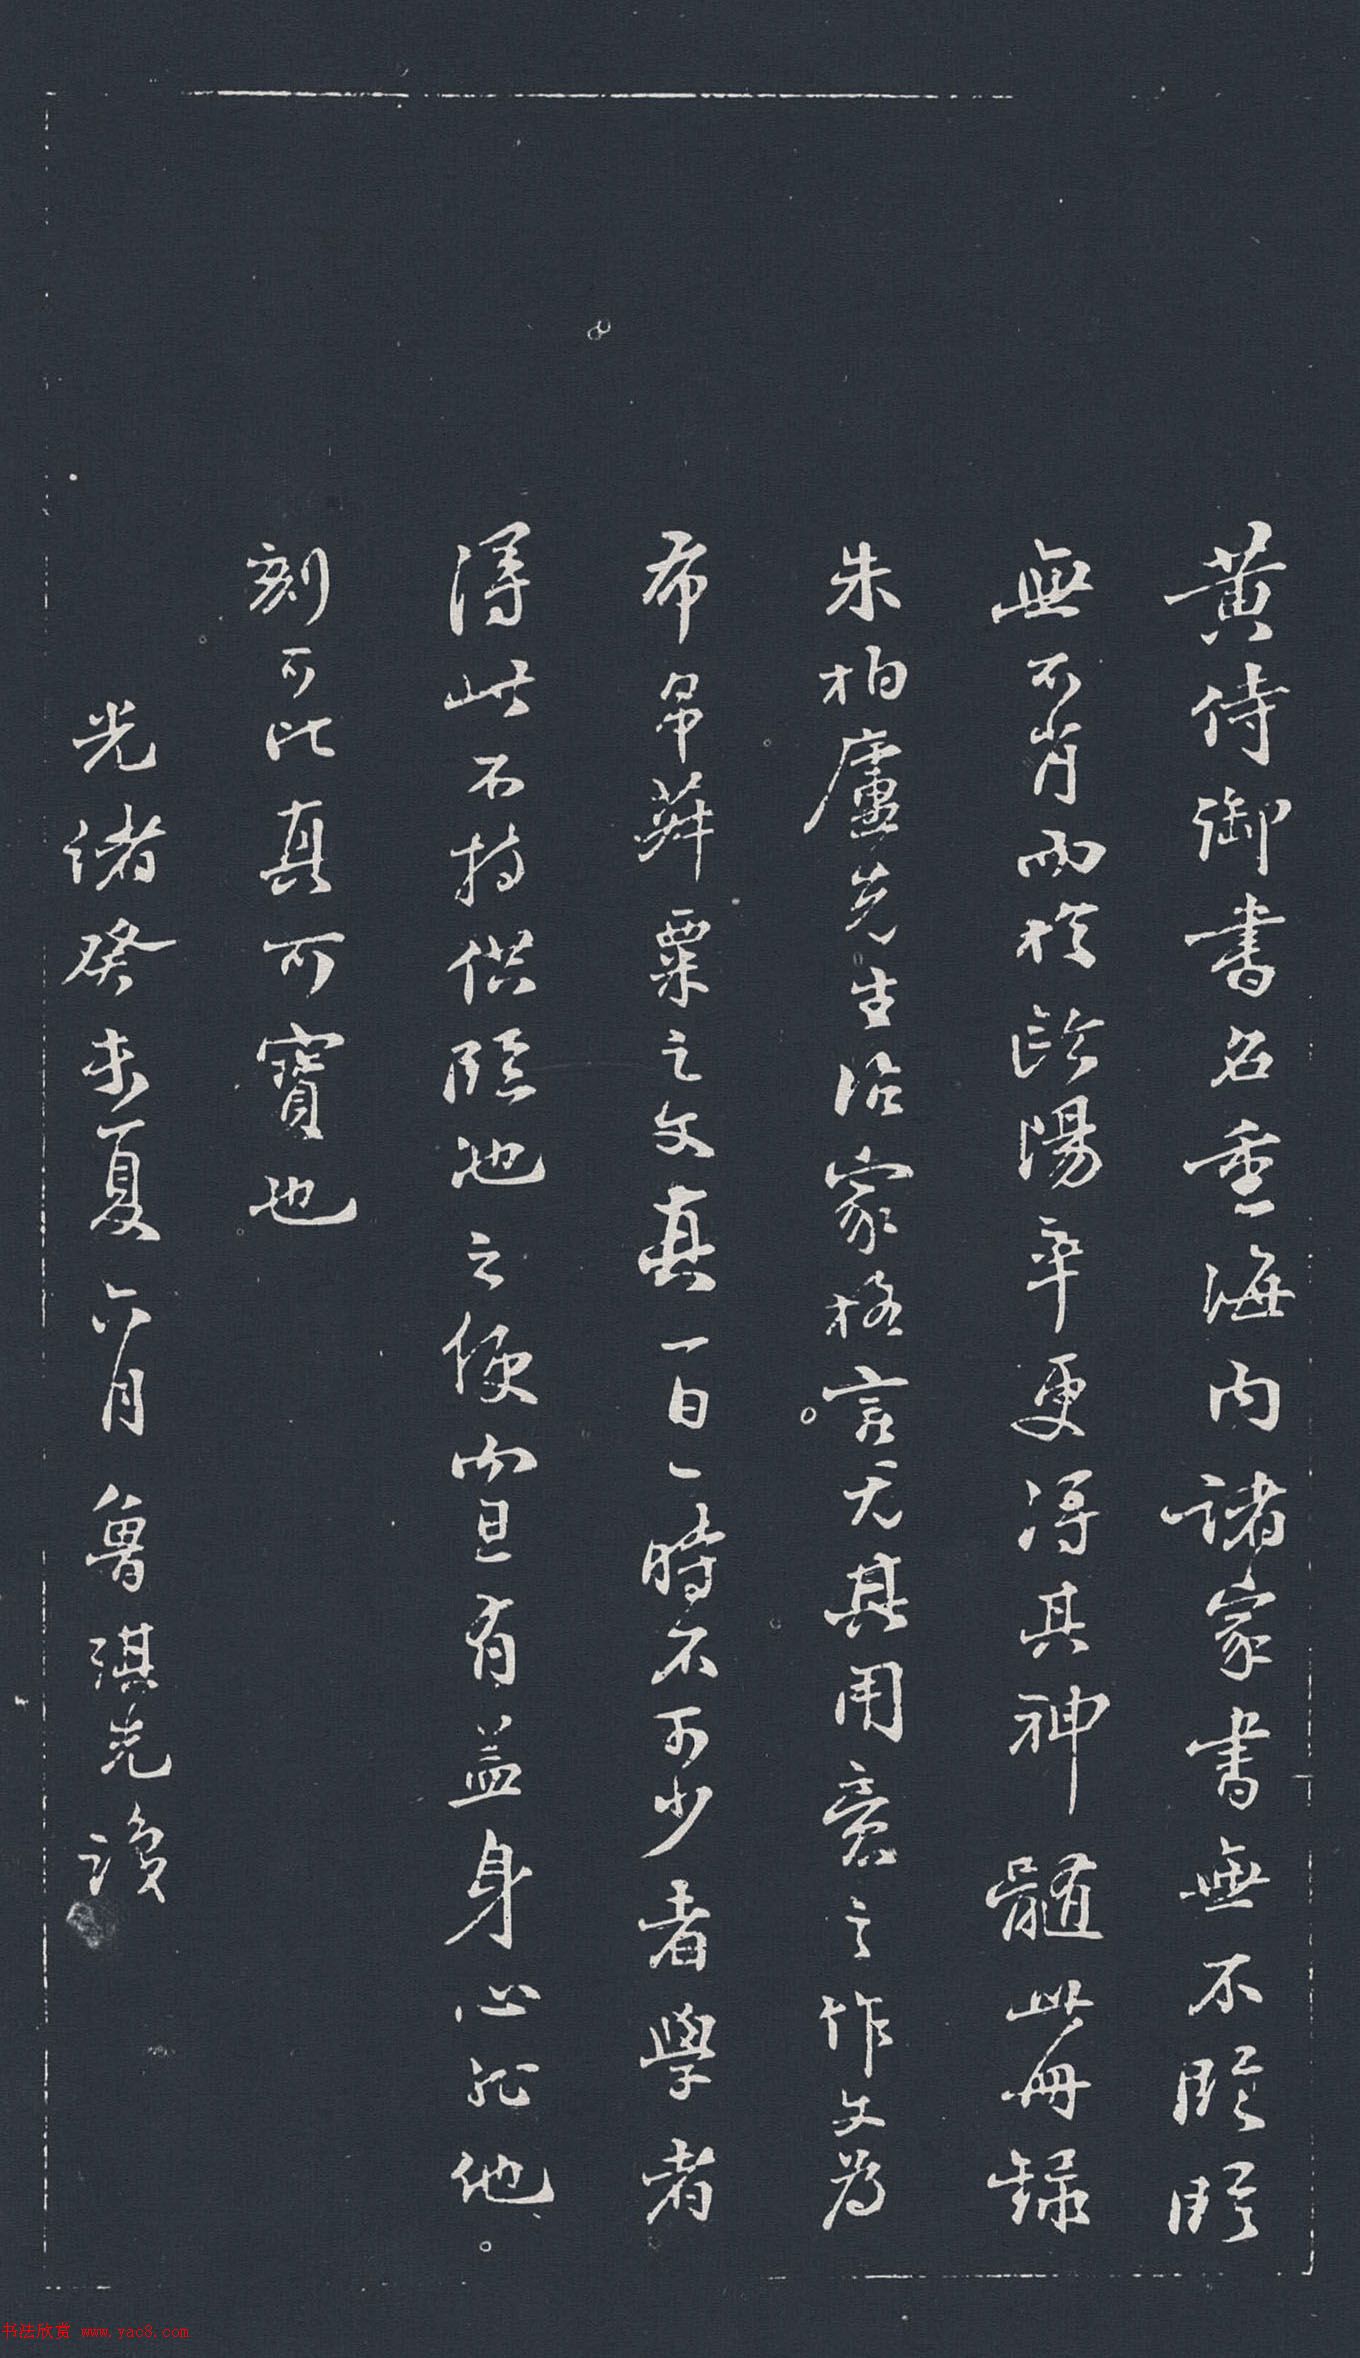 黃侍御書名重海内諸家書無不臨臨
無不肖而於歐陽率更得其神髓此冊録
朱柏廬先生治家格言尤其用意之作文為
布帛菽粟之文真一日一時不可少者學者
得此不特供臨池之便而且有益身心非他
刻可比真可寶也
光緒癸未夏六月魯琪光識
书法欣赏 www.yac8.com